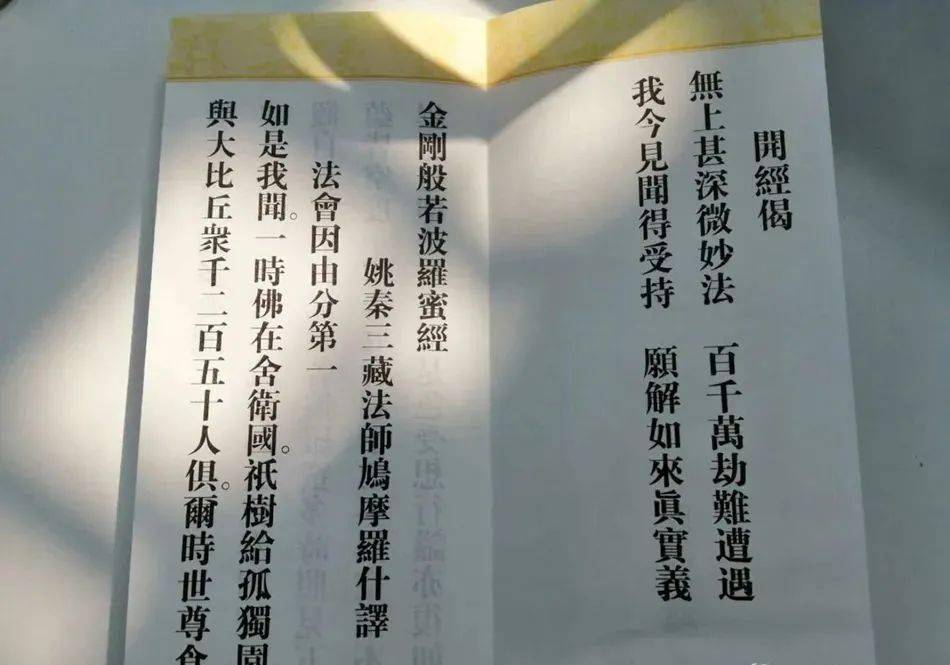 開經偈
無上甚深微妙法　百千萬劫難遭遇
我今見聞得受持　願解如來眞實義
金剛般若波羅蜜經
姚秦三藏法師鳩摩羅什譯
法會因由分第一
如是我聞。一時佛在舍衛國。祇樹給孤獨園
與大比丘衆千二百五十人俱。爾時世尊食